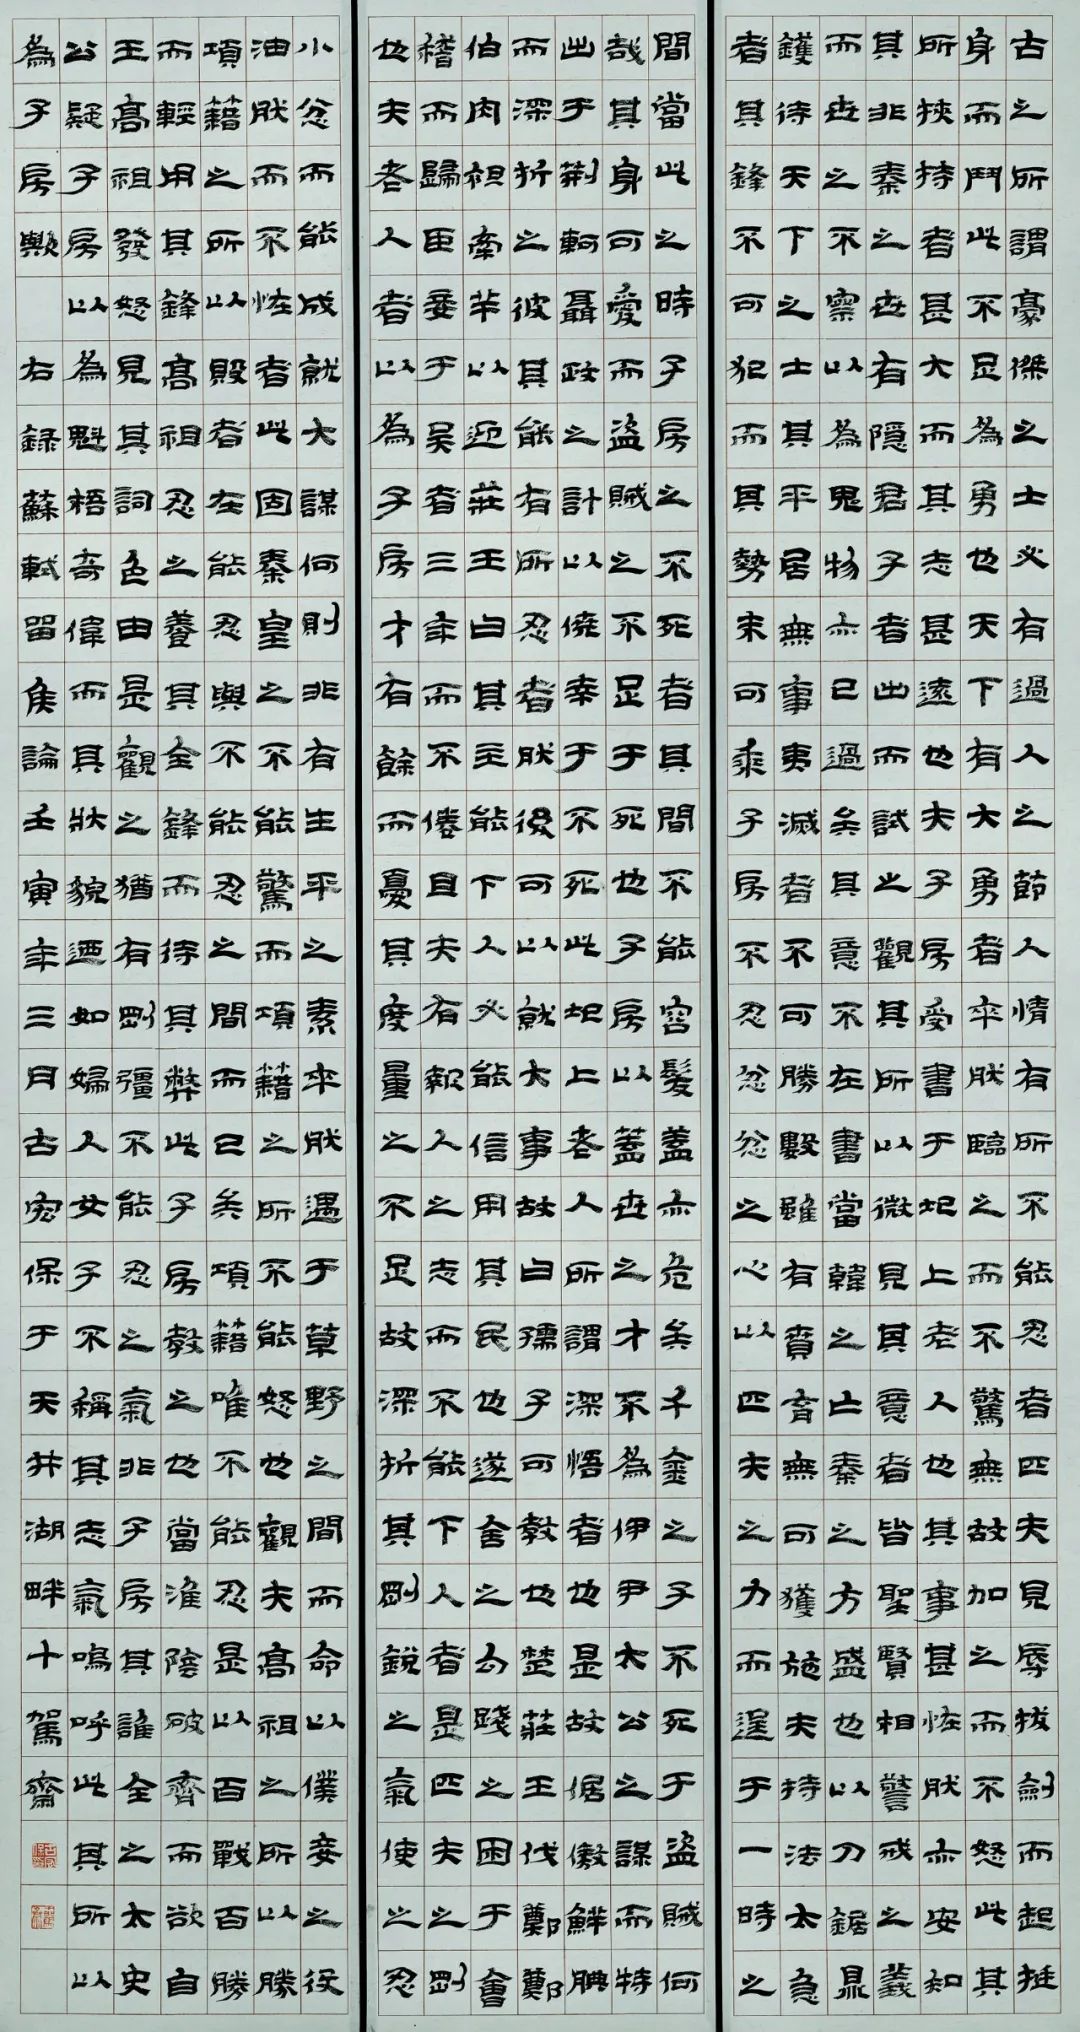 古之所謂豪傑之士必有過人之節人情有所不能忍者匹夫見辱拔劍而起挺
身而鬥此不足為勇也天下有大勇者卒然臨之而不驚無故加之而不怒此其
所挾持者甚大而其志甚遠也夫子房受書于圯上老人也其事甚怪然亦安知
其非秦之世有隱君子者出而試之觀其所以微見其意者皆聖賢相警戒之義
而世之不察以為鬼物亦已過矣其意不在書當韓之亡秦之方盛也以刀鋸鼎
鑊待天下之士其平居無事夷滅者不可勝數雖有賁育無可獲施夫持法太急
者其鋒不可犯而其勢未可乘子房不忍忿忿之心以匹夫之力而逞于一時之
間當此之時子房之不死者其間不能容髮蓋亦危矣千金之子不死于盜賊何
哉其身可愛而盜賊之不足于死也子房以蓋世之才不為伊尹太公之謀而特
出于荊軻聶政之計以僥幸于不死此圯上老人所謂深悟者也是故倨傲鮮腆
而深折之彼其能有所忍者然後可以就大事故曰孺子可教也楚莊王伐鄭鄭
伯肉袒牽羊以迎莊王曰其主能下人必能信用其民也遂舍之勾踐之困于會
稽而歸臣妾于吳者三年而不倦且夫有報人之志而不能下人者是匹夫之剛
也夫老人者以為子房才有餘而憂其度量之不足故深折其剛銳之氣使之忍
小忿而能成就大謀何則非有生平之素卒然遇于草野之間而命以僕妾之役
油然而不怪者此固秦皇之不能驚而項籍之所不能怒也觀夫高祖之所以勝
項籍之所以毀者在能忍與不能忍之間而已矣項籍唯不能忍是以百戰百勝
而輕用其鋒高祖忍之養其全鋒而待其弊此子房教之也當淮陰破齊而欲自
王高祖發怒見其詞色由是觀之猶有剛彊不能忍之氣非子房其誰全之太史
公疑子房以為魁梧奇偉而其狀貌迺如婦人女子不稱其志氣嗚呼此其所以
為子房歟 右錄蘇軾留侯論壬寅年三月古宏保于天井湖畔十駕齋